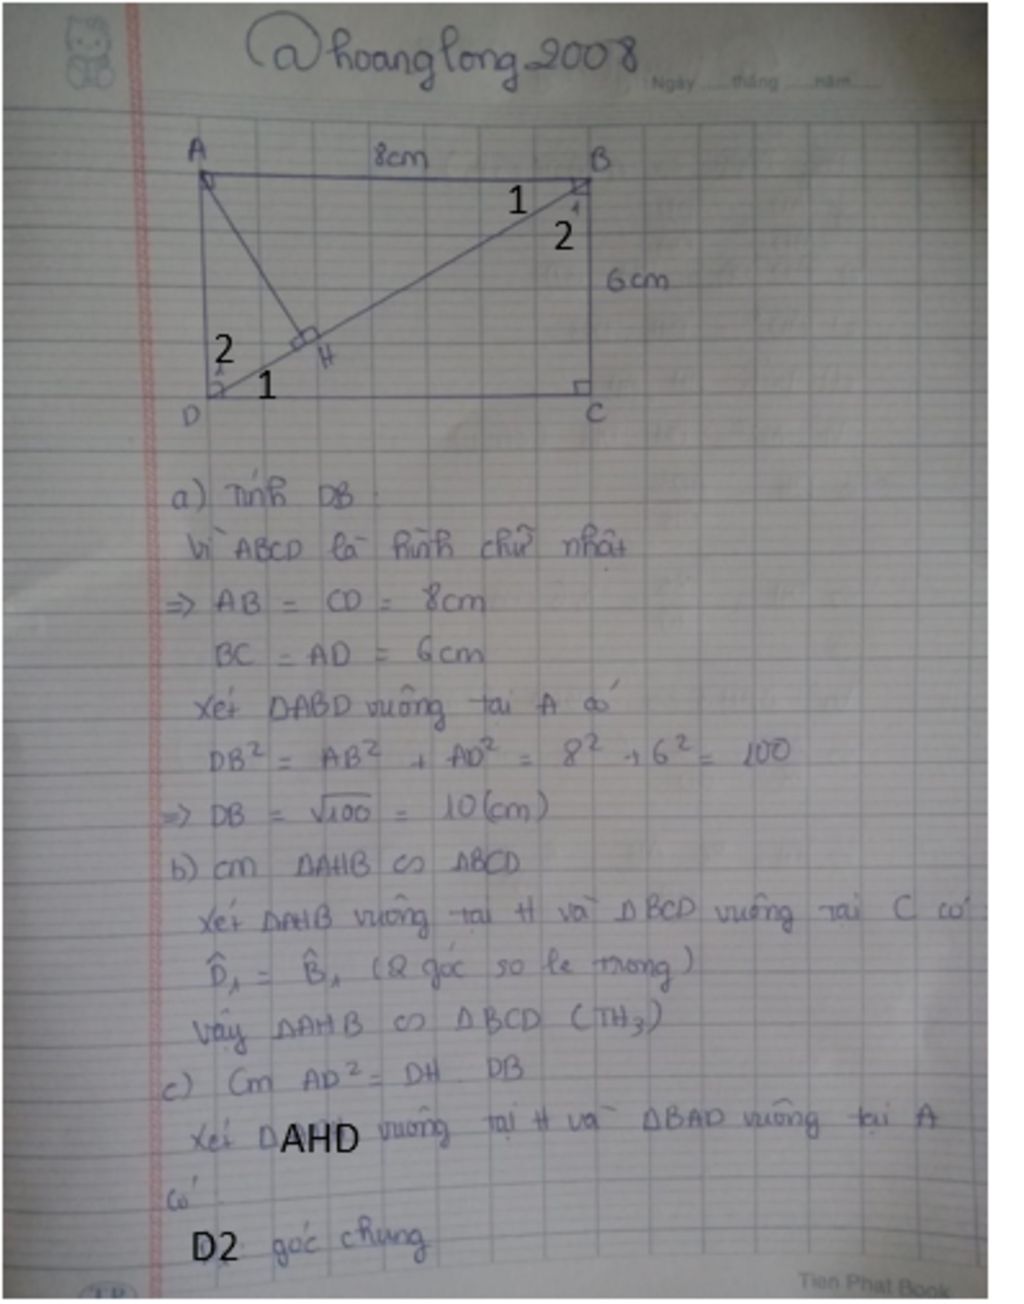 @hoanglong2008
Ngày.....tháng.....năm.....
A 8cm B
1
2
6cm
2 H
1
D C
a) Tính DB
Vì ABCD là hình chữ nhật
=> AB = CD = 8cm
BC = AD = 6cm
Xét ΔABD vuông tại A có
DB² = AB² + AD² = 8² + 6² = 100
=> DB = √100 = 10(cm)
b) Cm ΔAHB ∽ ΔBCD
Xét ΔAHB vuông tại H và ΔBCD vuông tại C có
D̂₁ = B̂₁ (2 góc so le trong)
Vậy ΔAHB ∽ ΔBCD (TH₃)
c) Cm AD² = DH . DB
Xét ΔAHD vuông tại H và ΔBAD vuông tại A
Có
D2 góc chung
Tien Phat Book